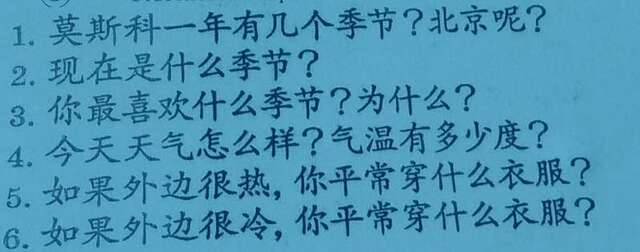 1. 莫斯科一年有几个季节？北京呢？
2. 现在是什么季节？
3. 你最喜欢什么季节？为什么？
4. 今天天气怎么样？气温有多少度？
5. 如果外边很热，你平常穿什么衣服？
6. 如果外边很冷，你平常穿什么衣服？